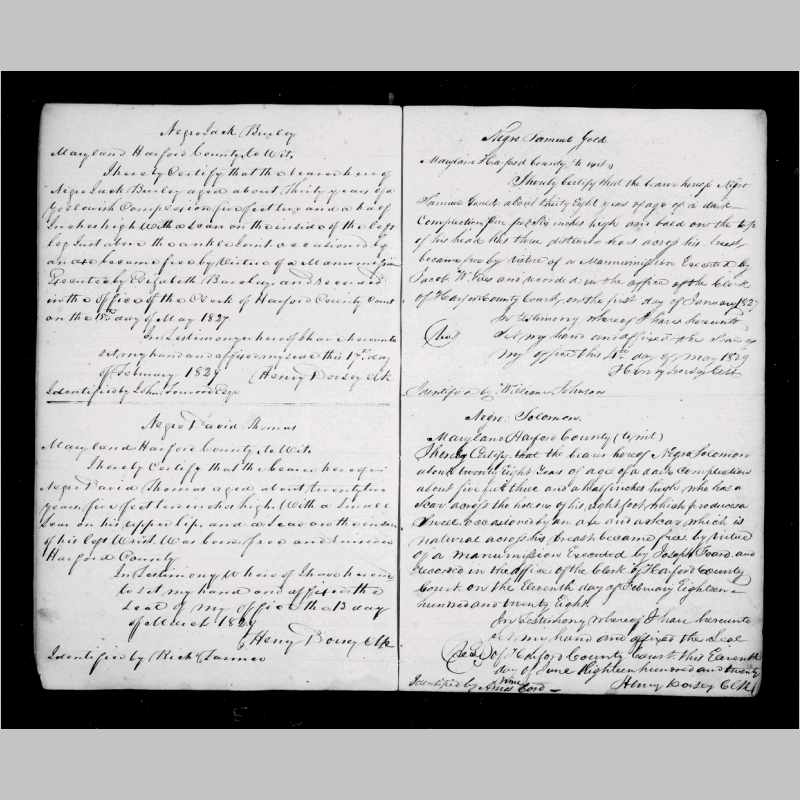 Negro Jack Busley
Maryland Harford County, to Wit,
I hereby Certify that the bearer hereof
Negro Jack Busley aged about Thirty years of a
Yellowish Complexion five feet two and a half
Inches high With a Scar on the inside of the left
leg Just above the ankle Joint occasioned by
an axe became free by Virtue of a Manumission
Executed by Elizabeth and recorded
in the office of the Clerk of Harford County Court
on the 18th day of May 1827
In Testimony whereof I have hereunto
set my hand and affixed my seal this 17th day
of February 1829 Henry Dorsey Clk
Identified by John
Negro David Thomas
Maryland Harford County to Wit,
I hereby Certify that the bearer hereof
Negro David Thomas aged about twenty two
years, five feet seven inches high, With a Small
Scar on his upper lip and a Scar on the
of his left Wrist Was born free and raised in
Harford County
In Testimony Whereof I have hereun
to set my hand and affixed the
Seal of my office this 13 day
of March 1829
Henry Dorsey Clk
Identified by Rich
Negro Samuel Gold
Maryland Harford County to wit,
I hereby Certify that the bearer hereof Negro
Samuel Gould about thirty Eight years of age of a dark
Complection five feet Six inches high bald on the top
of his head has three distance across his breast
became free by virtue of a Manumission Executed by
Jacob W. and recorded in the office of the Clerk
of Harford County Court, on the first day of January 1827
In Testimony whereof I have hereunto
(Seal) Set my hand and affixed the Seal of
my office this day of May 1829
Henry Dorsey Clk
Identified by William Johnson
Negro Solomon
Maryland Harford County (to wit)
I hereby Certify that the bearer hereof Negro Solomon
about twenty Eight years of age of a dark Complection
about five feet three and a half inches high who has a
Scar across the hollow of his right foot which produces a
occasioned by an axe and a scar which is
natural across his breast became free by virtue
of a manumission Executed by Joseph and
recorded in the office of the Clerk of Harford County
Court on the Eleventh day of February Eighteen
hundred and twenty Eight.
In Testimony whereof I have hereunto
set my hand and affixed the Seal
(Seal) of Harford County Court this Eleventh
day of June Eighteen hundred and twenty
nine
Identified by Amos Henry Dorsey Clk